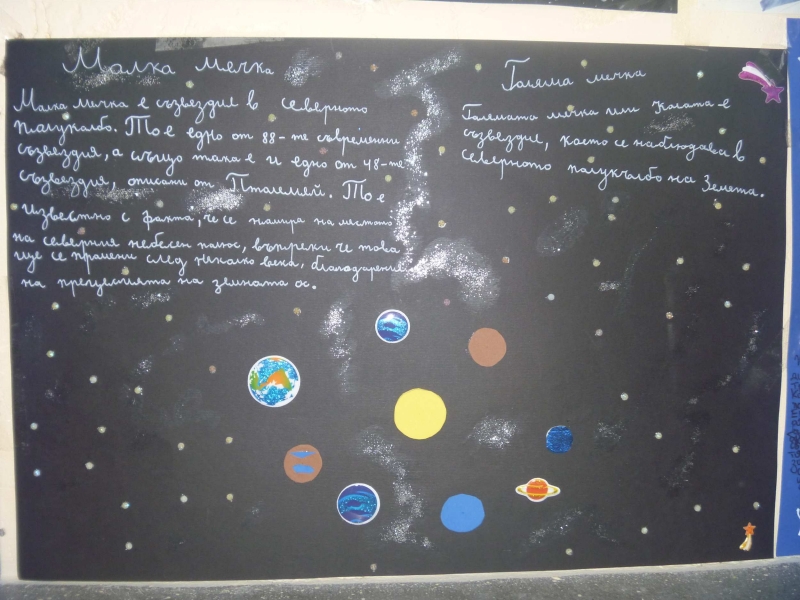 Малка мечка
Малка мечка е съзвездие в северното
полукълбо. То е едно от 88-те съвременни
съзвездия, а също така е и едно от 48-те
съзвездия, описани от Птолемей. То е
известно с факта, че се намира на мястото
на северния небесен полюс, въпреки че това
ще се промени след няколко века, благодарение
на прецесията на земната ос.
Голяма мечка
Голямата мечка или Колата е
съзвездие, което се наблюдава в
северното полукълбо на Земята.